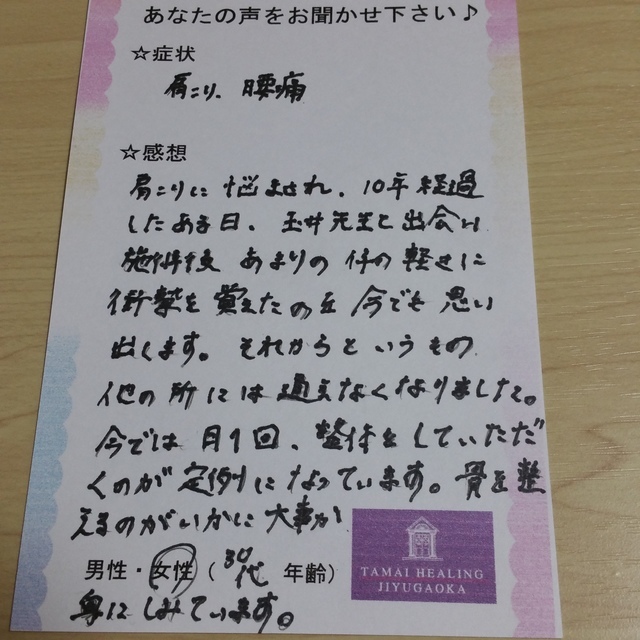 あなたの声をお聞かせ下さい♪
☆症状
肩こり、腰痛
☆感想
肩こりに悩まされ、10年経過
したある日、玉井先生と出会い
施術後 あまりの体の軽さに
衝撃を覚えたのを今でも思い
出します。それからというもの
他の所には通えなくなりました。
今では月1回、整体をしていただ
くのが定例になっています。骨を整
えるのがいかに大事か
男性・女性（30代 年齢）
身にしみています。
TAMAI HEALING
JIYUGAOKA